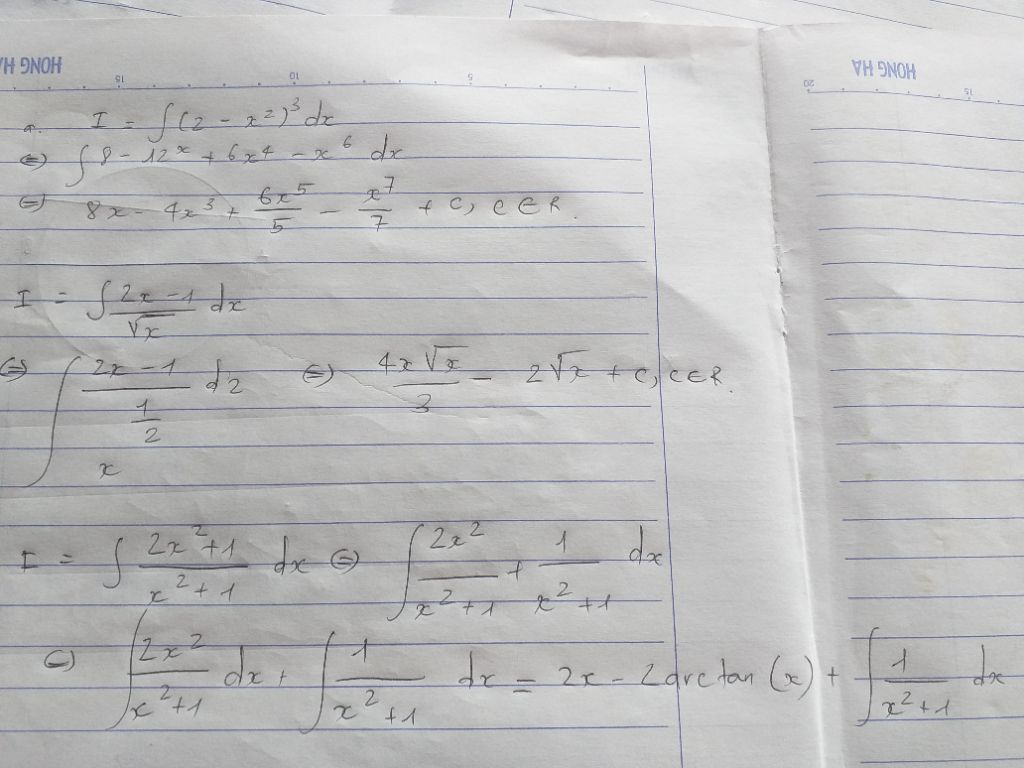 HONG HA
15 10 5
HONG HA
20 15
a. I = ∫(2 - x²)³ dx
⇔ ∫ 8 - 12ˣ + 6x⁴ - x⁶ dx
⇔ 8x - 4x³ + 6x⁵/5 - x⁷/7 + C, C ∈ R.
I = ∫ (2x - 1)/√x dx
⇔ ∫ (2x - 1)/x^(1/2) d2 ⇔ 4x√x/3 - 2√x + C, C ∈ R.
I = ∫ (2x² + 1)/(x² + 1) dx ⇔ ∫ 2x²/(x² + 1) + 1/(x² + 1) dx
⇔ ∫ 2x²/(x² + 1) dx + ∫ 1/(x² + 1) dx = 2x - 2arctan(x) + ∫ 1/(x² + 1) dx